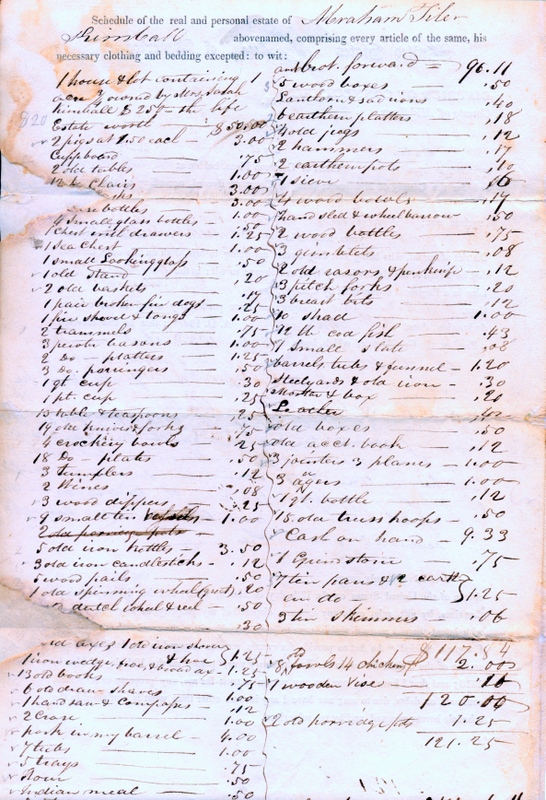 Schedule of the real and personal estate of Abraham Tiler
Kimball abovenamed, comprising every article of the same, his
necessary clothing and bedding excepted: to wit:
1 house & lot containing 1
acre owned by Mrs Sarah
Kimball $250 - the life
Estate worth $50.00
2 pigs at 1.50 each - 3.00
Cupboard .75
2 old tables 1.00
12 Chairs 3.00
3.00
bottles 1.00
4 Small glass bottles .50
1 Chest with drawers 1.25
1 Sea Chest 1.00
1 small Lookingglass .50
1 old Stand .20
2 old baskets .17
1 pair broken fire dogs .25
1 fire shovel & tongs 1.00
2 trammels .75
3 pewter basons 1.00
2 Do - platters 1.25
3 Do porringers .50
1 qt cup .30
1 pt cup .25
13 table & teaspoons .25
19 old knives & forks .75
4 crockery bowls .25
18 Do - plates .50
3 tumblers .12
2 Wines .08
3 wood dippers .25
9 small tin 1.00
2 old porringe pots
5 old iron kettles 3.50
3 old iron candlesticks .12
5 wood pails .50
1 old spinning wheel .20
dutch wheel & reel .50
.30
old axes 1 old iron shovel
1 iron wedge, froe, & broad ax & hoe 1.25
13 old books 1.25
6 old draw shaves .75
1 handsaw & Compasses 1.00
2 Crose .12
pork in my barrel 1.00
7 tubs 4.00
5 trays 1.00
flour .75
Indian meal .50
.50
amt brot forward = 96.11
5 wood boxes .50
Lanthorn & sad irons .40
6 earthern platters .18
4 old jugs .12
2 hammers .17
2 earthern pots .10
1 sieve .16
4 wood bowls .17
hand sled & wheelbarrow .50
2 wood bottles .75
3 gimblets .08
2 old rasors & penknife .12
3 pitch forks .20
3 breast bits .12
10 shad 1.00
12 lb cod fish .43
1 small slate .08
barrels, tubs & funnel 1.20
Steelyards & old iron .30
Mortter & box .20
Leather .40
old boxes .50
old acct. book .12
3 jointers 3 planes 1.00
3 agers 1.00
1 qt. bottle .12
15 old truss hoops .50
Cash on hand 9.33
1 Grindstone .75
7 tin pans & 12 earth
en do 1.25
3 tin skimmers .06
$117.84
8 fowls 14 chicken 2.00
1 wooden Vise .16
120.00
2 old porridge pots 1.25
121.25